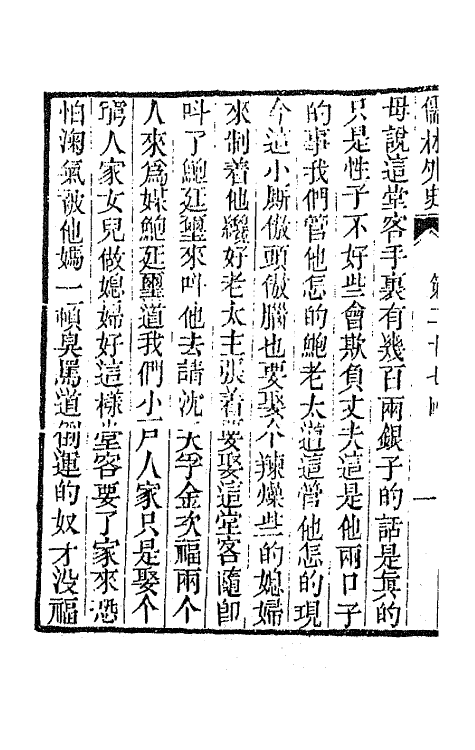 儒林外史
第二十七回
一
母說這堂客手裏有幾百兩銀子的話是真的
只是性子不好些會欺負丈夫這是他兩口子
的事我們管他怎的鮑老太道這管他怎的現
今這小厮傲頭傲腦也要娶个辣燥些的媳婦
來制着他纔好老太主張着要娶這堂客隨即
呌了鮑廷璽來呌他去請沈天孚金次福兩个
人來爲媒鮑廷璽道我們小戶人家只是娶个
窮人家女兒做媳婦好這樣堂客要了家來恐
怕淘氣被他媽一頓臭罵道倒運的奴才没福